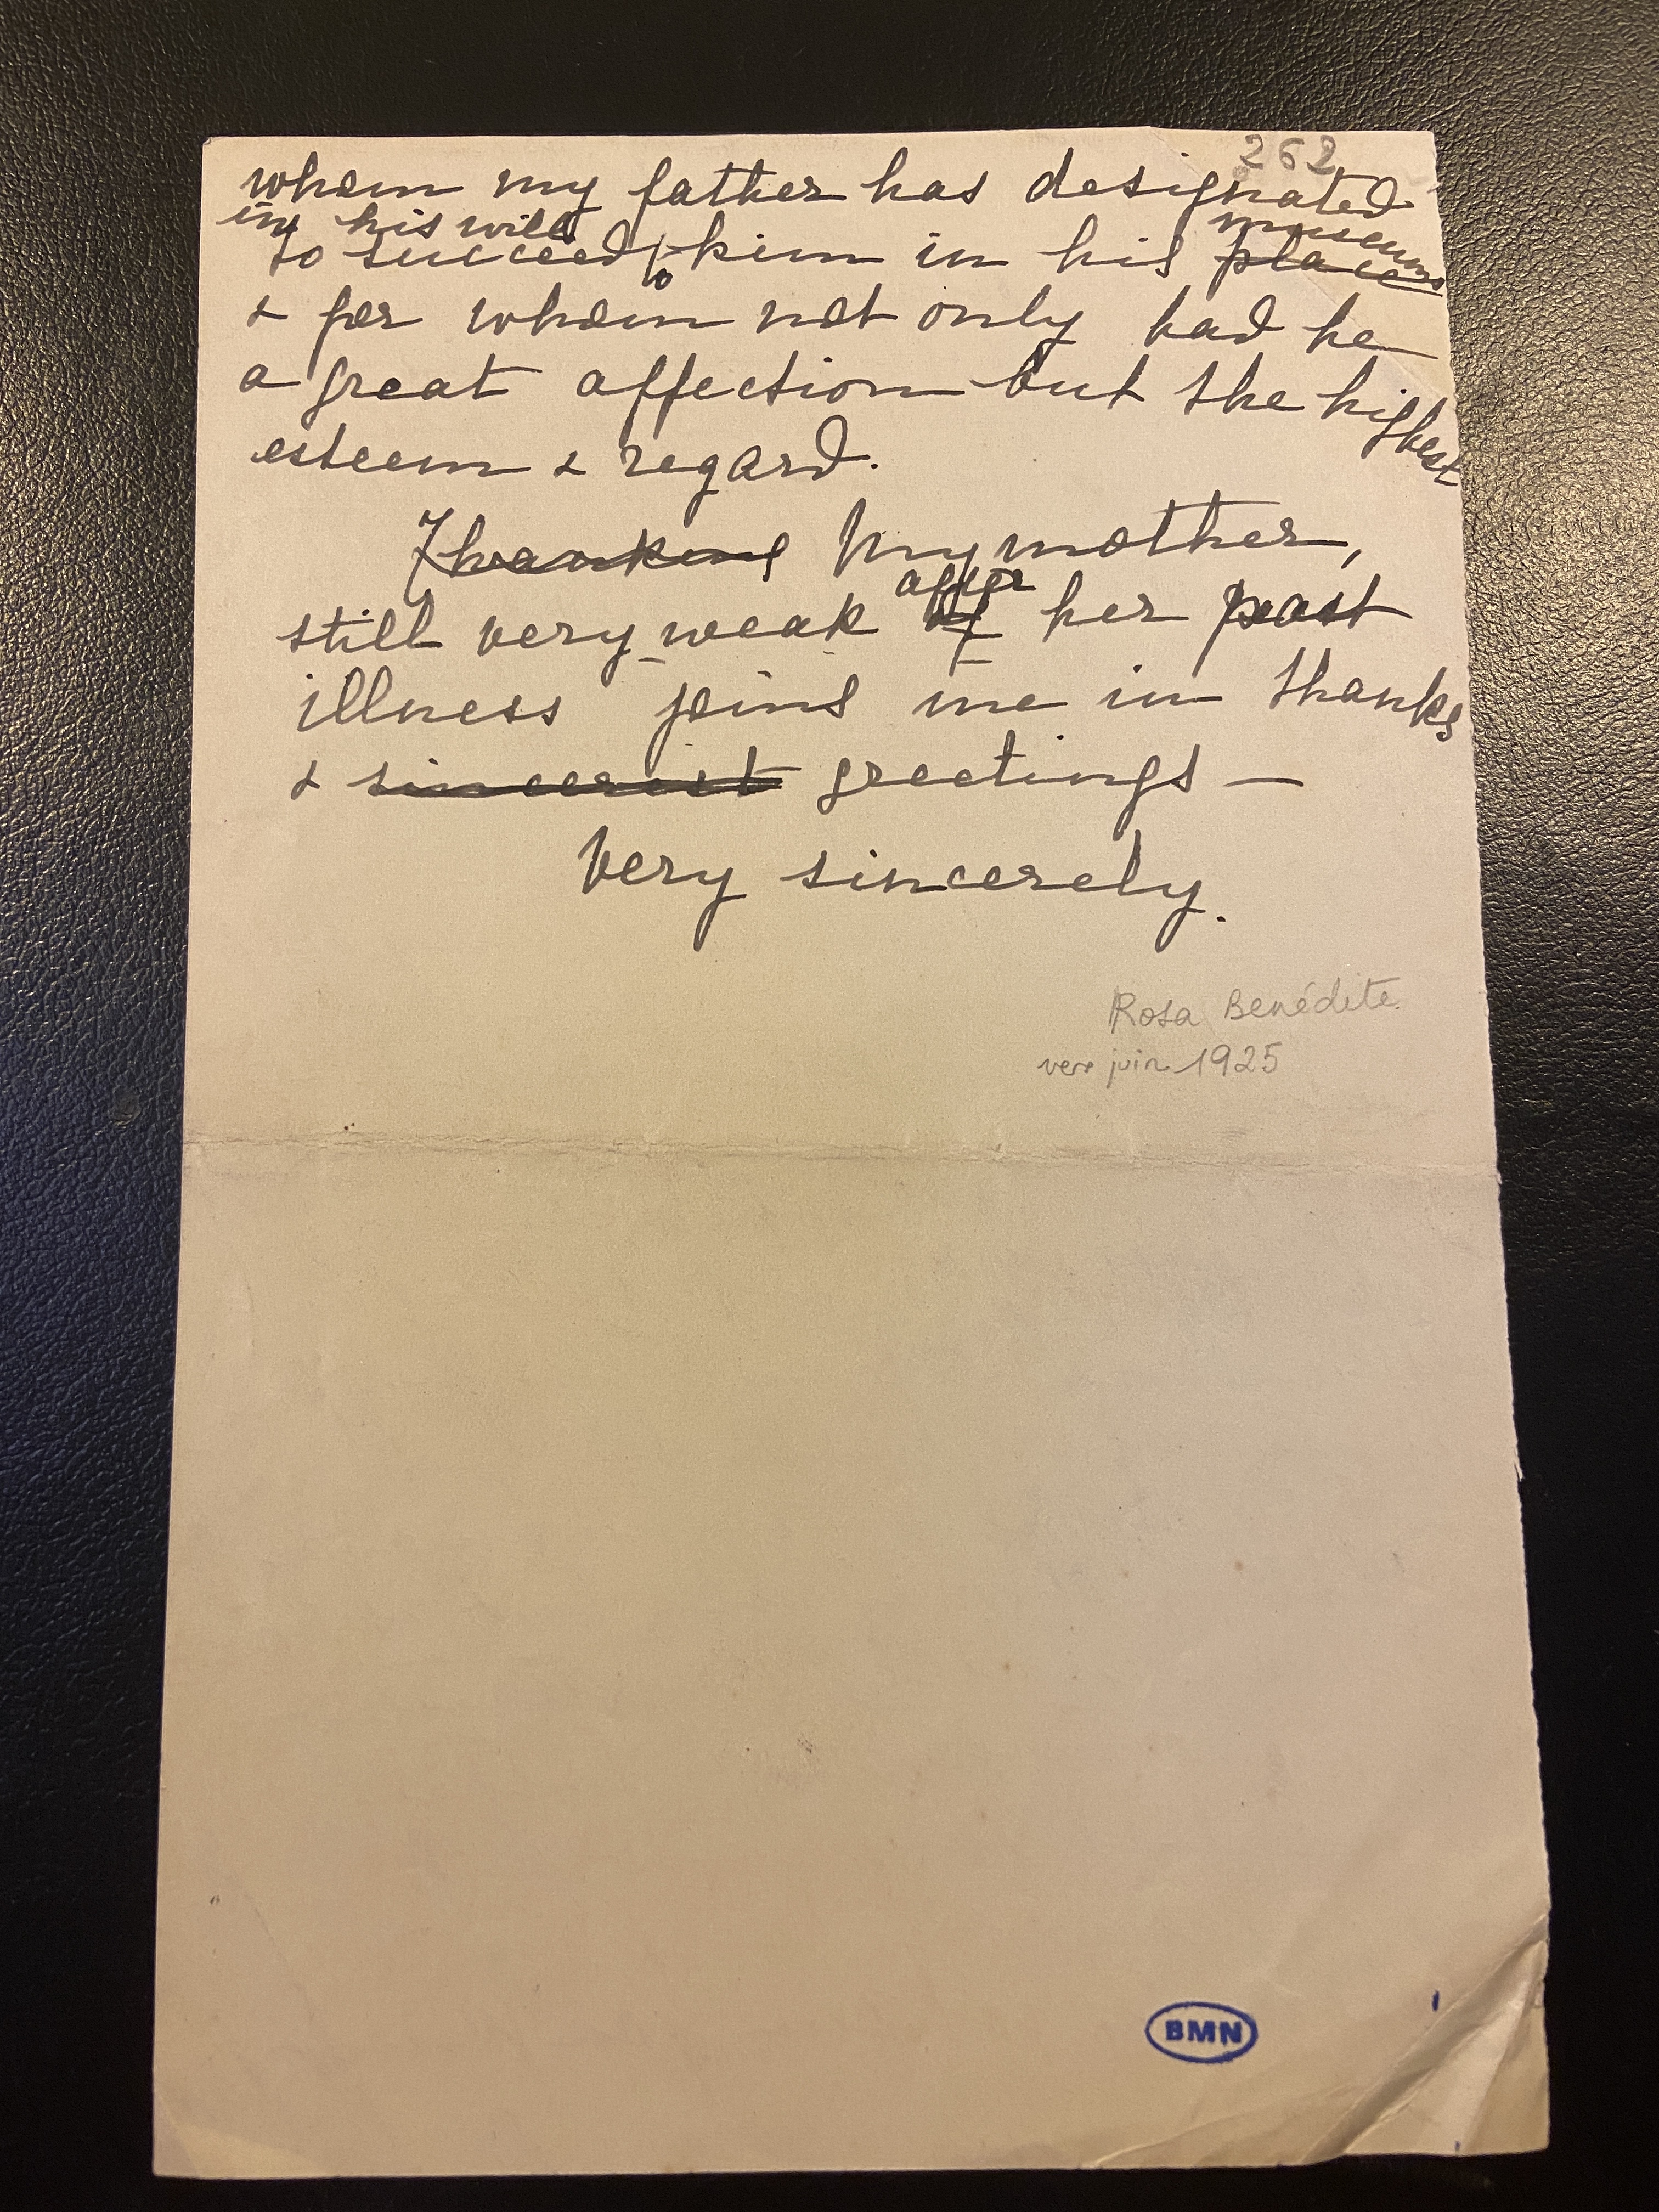 262
whom my father has designated
in his will museums
to succeed to him in his places
& for whom not only had he
a great affection but the highest
esteem & regard.
Thanking My mother,
after
still very weak of her past
illness joins me in thanks
& sincerest greetings —
Very sincerely.
Rosa Benédite
vers juin 1925
BMN